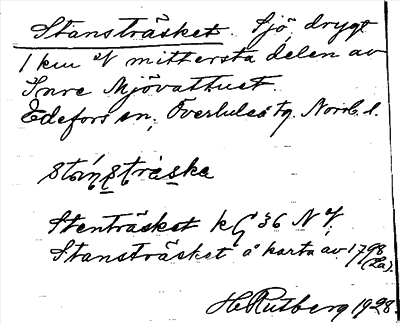 Stansträsket. Sjö, drygt
1 km V mittersta delen av
Inre Mjövattnet.
Edefors sn, Överluleå tg. Norrb. l.
stánstràska
Stenträsket kG 36 NV;
Stansträsket å karta av 1798
(La).
H Rutberg 1928.